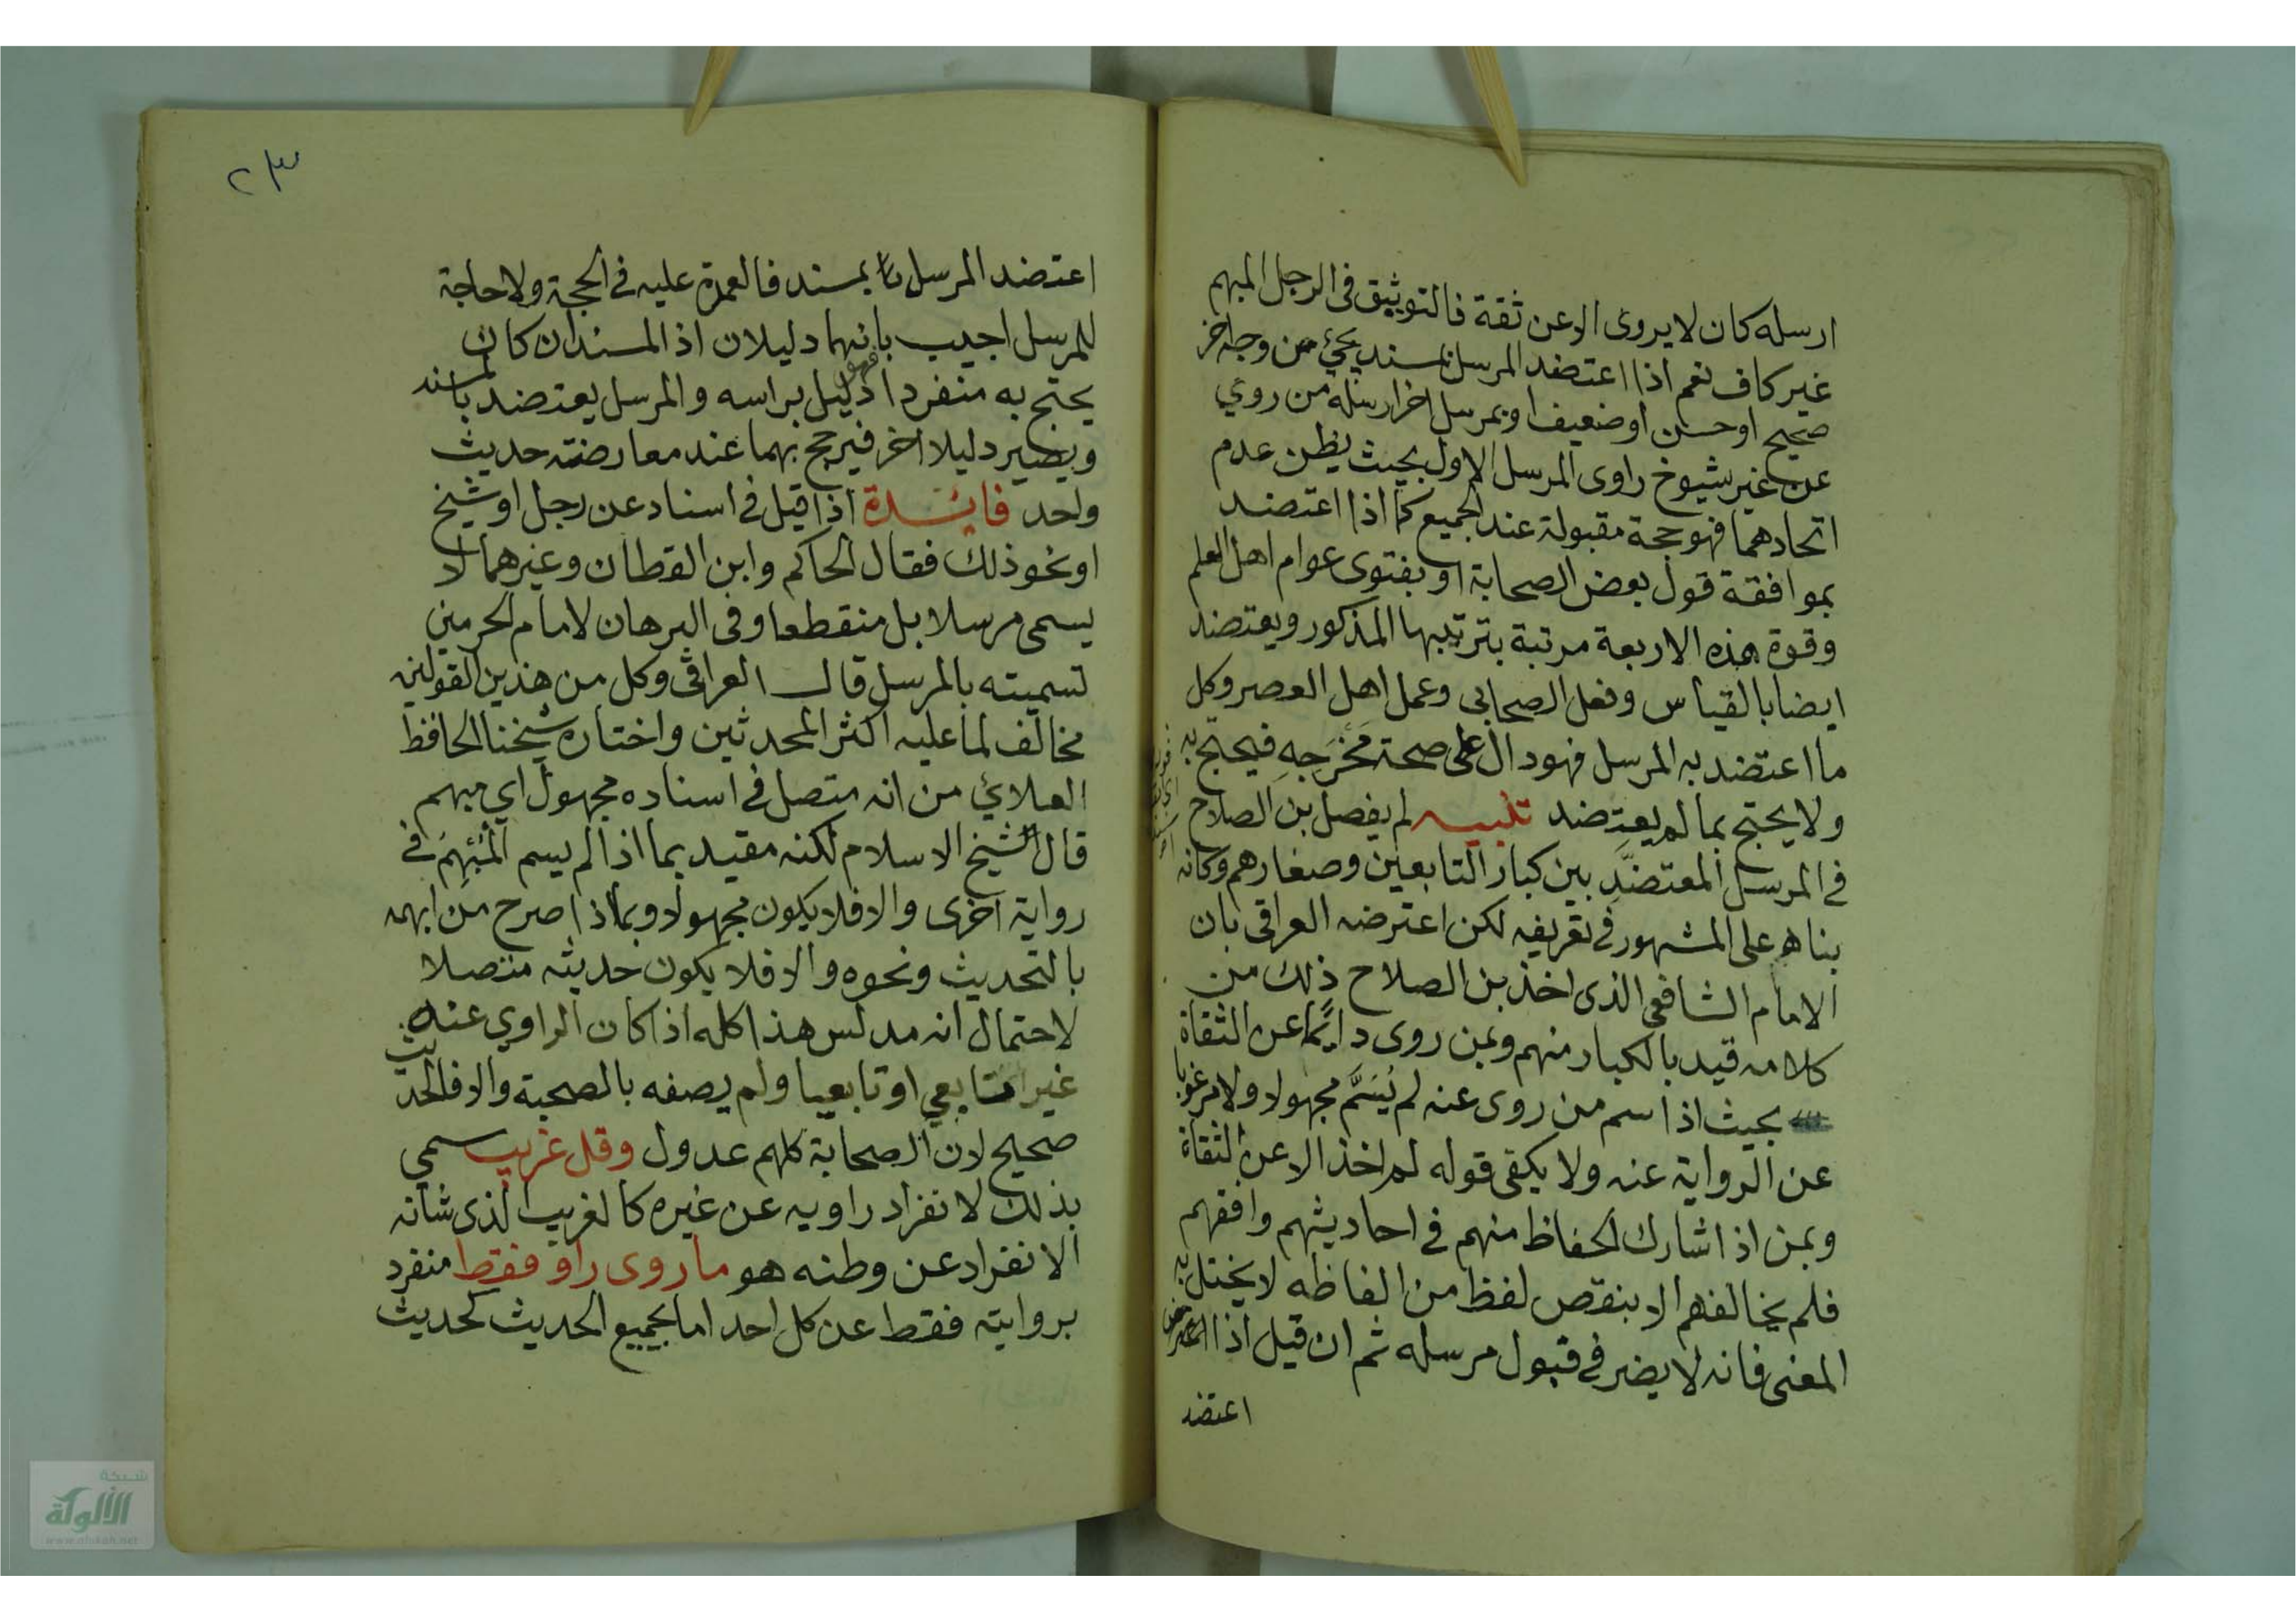 ارسله كان لا يروى الا عن ثقة فالتوثيق فى الرجل المبهم
غير كاف نعم اذا اعتضد المرسل بمسند يجئ من وجه اخر
صحيح او حسن او ضعيف او بمرسل اخر ارسله من روي
عن غير شيوخ راوى المرسل الاول بحيث يظن عدم
اتحادهما فهو حجة مقبولة عند الجميع كما اذا اعتضد
بموافقة قول بعض الصحابة او بفتوى عوام اهل العلم
وقوة هذه الاربعة مرتبة بترتيبها المذكور ويعتضد
ايضا بالقياس وفعل الصحابى وعمل اهل العصر وكل
ما اعتضد به المرسل فهو دال على صحة مَخْرَجِهِ فيحتج به
ولا يحتج بما لم يعتضد تنبيه لم يفصل بن الصلاح
فى المرسل المعتضد بين كبار التابعين وصغارهم وكانه
بناه على المشهور فى تعريفه لكن اعترضه العراقى بان
الامام الشافعى الذى اخذ بن الصلاح ذلك من
كلامه قيد بالكبار منهم وبمن روى دائما عن الثقاة
بحيث اذا سم من روى عنه لم يُسَمَّ مجهولا ولا مرغوبا
عن الرواية عنه ولا يكفى قوله لم اخذ الا عن الثقاة
وبمن اذا شارك الحفاظ منهم فى احاديثهم وافقهم
فلم يخالفهم الا بنقص لفظ من الفاظه لا يختل به
المعنى فانه لا يضر فى قبول مرسله ثم ان قيل اذا
اعتضد
٢٣
اعتضد المرسل بمسند فالعمدة عليه فى الحجة ولا حاجة
للمرسل اجيب بانهما دليلان اذ المسند ان كان
يحتج به منفردا فهو دليل براسه والمرسل يعتضد بالمسند
ويصير دليلا اخر فيرجح بهما عند معارضته حديث
واحد فائدة اذا قيل فى اسناد عن رجل او شيخ
او نحو ذلك فقال الحاكم وابن القطان وغيرهما لا
يسمى مرسلا بل منقطعا وفى البرهان لامام الحرمين
تسميته بالمرسل قال العراقى وكل من هذين القولين
مخالف لما عليه اكثر المحدثين واختاره شيخنا الحافظ
العلائي من انه متصل فى اسناده مجهول اي مبهم
قال الشيخ الاسلام لكنه مقيد بما اذا لم يسم المُبْهِمُ فى
رواية اخرى والا فلا يكون مجهولا وبما اذا صرح من ابهمه
بالتحديث ونحوه والا فلا يكون حديثه متصلا
لاحتمال انه مدلس هذا كله اذا كان الراوي عنه
غير تابعي او تابعيا ولم يصفه بالصحبة والا فالحديث
صحيح لان الصحابة كلهم عدول وقل غريب سمي
بذلك لانفراد راويه عن غيره كالغريب الذى شانه
الانفراد عن وطنه هو ما روى راو فقط منفرد
بروايته فقط عن كل احد اما بجميع الحديث كحديث
شبكة
الألوكة
www.alukah.net